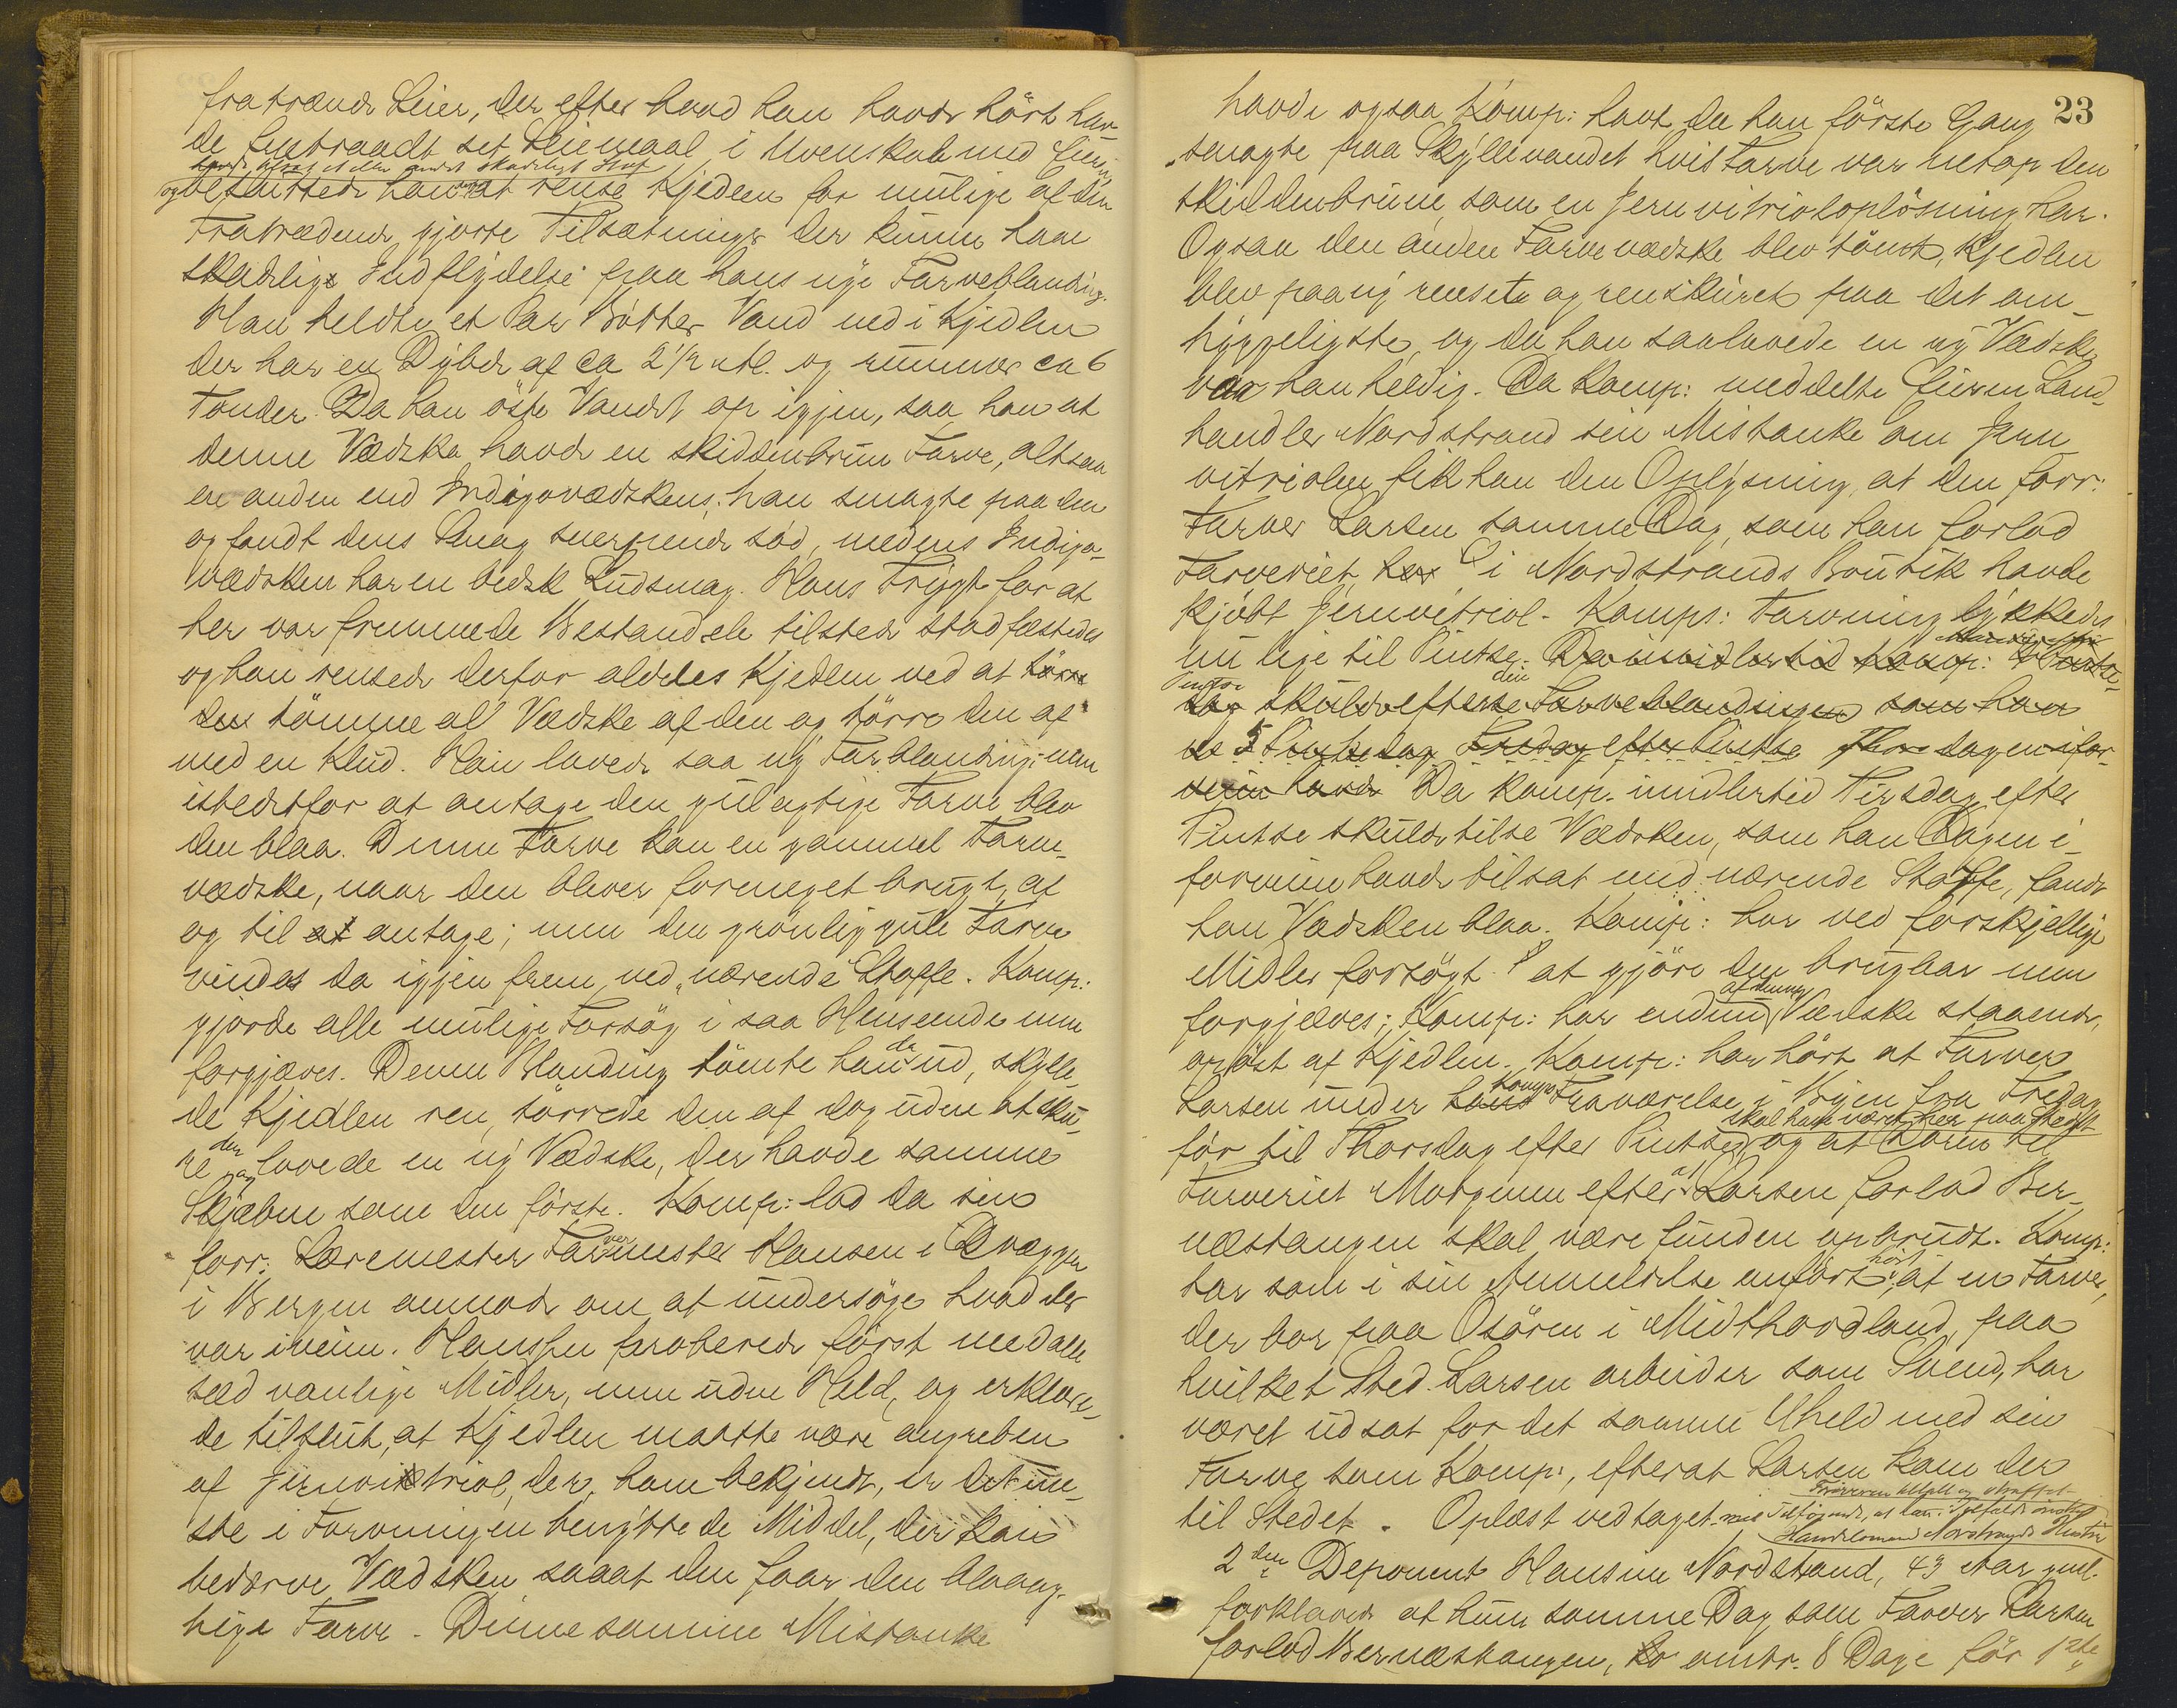 fratrædende Leier, der efter hvad han havde hört hav-
de fratraadt set Leiemaal i Uvenskab med Eieren,
og besluttede han at rense Kjedlen for mulige af den
Fratrædende gjorte Tilsætninger der kunne have
skadelige Indflydelse paa hans nye Farveblanding.
Han heldte et Par Bötter Vand ned i Kjedlen
der har en Dybde af ca 2 1/2 al. og rummer ca 6
Tönder. Da han öste Vandet op igjen, saa han at
denne Vædske havde en skiddenbrun Farve, altsaa
en anden end Indigovædskens; han smagte paa den
og fandt dens Smag snerpende söd, medens Indigo-
vædsken har en bedsk Ludsmag. Hans Frygt for at
her var fremmede Bestandele tilstede stadfæstedes
og han rensede derfor aldeles Kjedlen ved at törre
den tömme al Vædske af den og törre den af
med en Klud. Han lavede saa ny Farblanding; men
istedetfor at antage den gulagtige Farve blev
den blaa. Denne Farve kan en gammel Farve-
vædske, naar den bliver formeget brugt, af
og til at antage; men den grönlig gule Farve
vindes da igjen frem ved "nærende" Stoffe. Komp:
gjorde alle mulige Forsög i saa Henseende men
forgjæves. Denne Blanding tömte han da ud, skylle-
de Kjedlen ren, törrede den af dog uden at sku-
re den og lavede en ny Vædske, der havde samme
Skjæbne som den förste. Komp: lod da sin
forr: Læremester Farvermester Hansen i Dræggen
i Bergen anmode om at undersöge hvad der
var iveien. Hansen proberede först med alle
sædvanlige Midler, men uden Held, og erklære-
de tilslut, at Kjedlen maatte være angreben
af Jernvitriol, der, ham bekjendt, er det ene-
ste i Farvningen benyttede Middel, der kan
bedærve Vædsken saaat den faar den blaag-
tige Farve. Denne samme Mistanke
23
havde ogsaa Komp: havt da han förste Gang
smagte paa Skyllevandet hvis Farve var netop den
skiddenbrune, som en Jernvitrioloplösning har.
Ogsaa den anden Farvevædske blev tömt, Kjedlen
blev paany renset og renskuret paa det om-
hyggeligste, og da han saa lavede en ny Vædske
var han heldig. Da Komp: meddelte Eieren Land-
handler Nordstrand sin Mistanke om Jern
vitriolen fik han den Oplysning, at den forr:
Farver Larsen samme Dag, som han forlod
Farveriet her i Nordstrands Boutik havde
kjöbt Jernvitriol. Komps: Farvning lykkedes
nu lige til Pintse. Da imidlertid Komp:
skulde efterse den Farveblandingen som han
Fredag efter Pintse dagen ifor-
veien havde Da Komp. imidlertid Tirsdag efter
Pintse skulde tilse Vædsken, som han Dagen i-
forveien havde tilsat med nærende Stoffe, fandt
han Vædsken blaa. Komp: har ved forskjellige
Midler forsögt at gjöre den brugbar men
forgjæves; Komp: har endnu af denne Vædske staaende,
opöst af Kjedlen. Komp: har hört at Farver
Larsen under hans Komps Fraværelse i Byen fra Fredag
för til Thorsdag efter Pintse skal have været her paa Stedet og at Dören til
Farveriet Morgenen efter at Larsen forlod Ber-
næstangen skal være funden opbrudt. Komp:
har som i sin Anmeldelse anfört, hört at en Farver,
der bor paa Osören i Midthordland, paa
hvilket Sted Larsen arbeider som Svend, har
været udsat for det samme Uheld med sin
Farve som Komp:, efterat Larsen kom der
til Stedet. Oplæst vedtaget
2den Deponent Hansine Nordstrand, 43 Aar gml.
forklarede at hun samme Dag som Farver Larsen
forlod Bernæstangen, omtr. 8 Dage för 12te